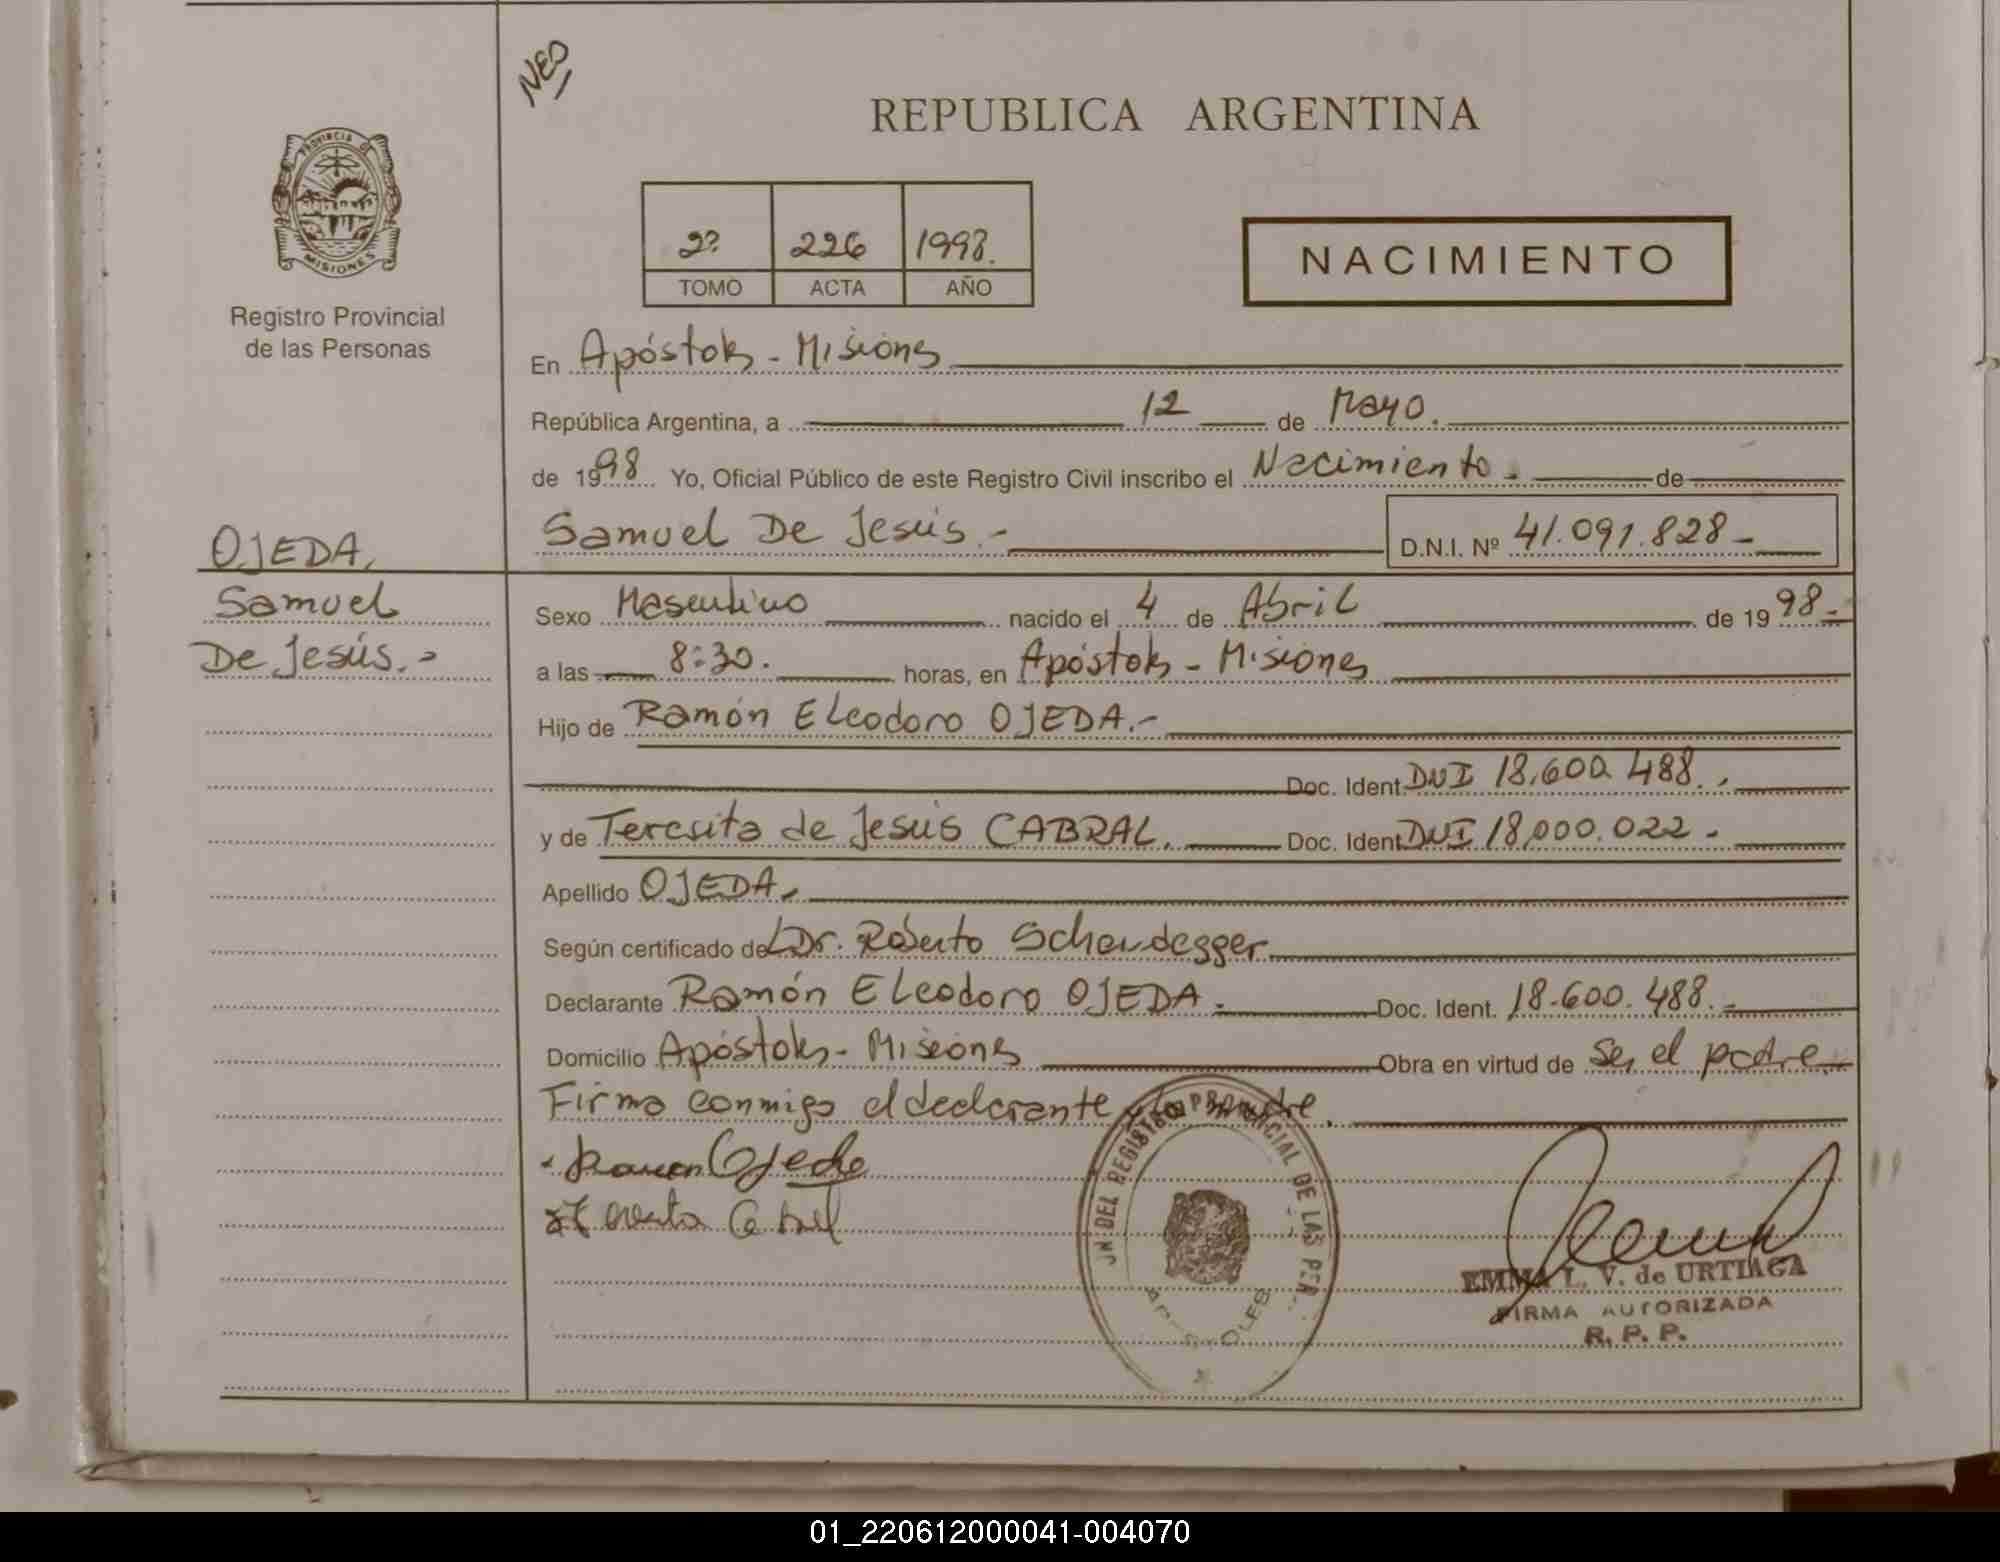 NEO
REPUBLICA ARGENTINA
PROVINCIA DE
MISIONES
Registro Provincial
de las Personas
2º 226 1998.
TOMO ACTA AÑO
NACIMIENTO
En Apóstoles - Misiones
República Argentina, a 12 de Mayo.
de 1998 Yo, Oficial Público de este Registro Civil inscribo el Nacimiento. de
Samuel De Jesús.- D.N.I. Nº 41.091.828-
OJEDA,
Samuel
De Jesús.-
Sexo Masculino nacido el 4 de Abril de 1998.-
a las 8:30. horas, en Apóstoles - Misiones
Hijo de Ramón Eleodoro OJEDA.-
Doc. Ident. DNI 18.600.488.
y de Teresita de Jesús CABRAL. Doc. Ident. DNI 18.000.022.
Apellido OJEDA.
Según certificado de Dr. Roberto
Declarante Ramón Eleodoro OJEDA. Doc. Ident. 18.600.488.-
Domicilio Apóstoles - Misiones Obra en virtud de Ser el padre.
Firma conmigo el declarante y la madre.
Ramon Ojeda
Cabral
DEL REGISTRO PROVINCIAL DE LAS PER
APOSTOLES
EMMA L. V. de URTIAGA
FIRMA AUTORIZADA
R. P. P.
01_220612000041-004070